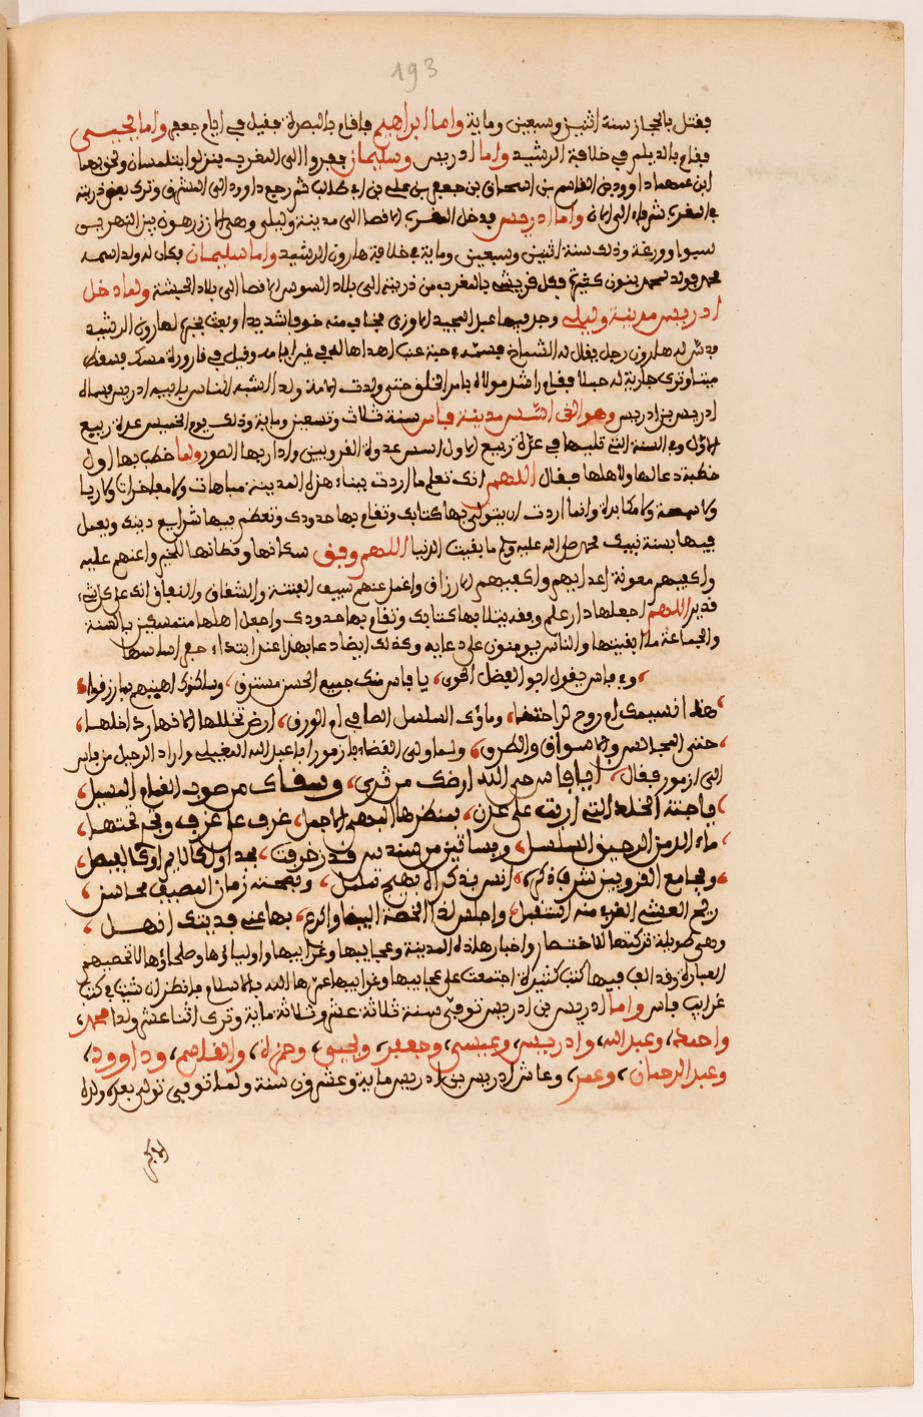 193
فقتل بالحجاز سنة اثنين وسبعين وماية واما ابراهيم فاقام بالبصرة فقيل في ايام جعفر واما يحيى
فقام بالديلم في خلافة الرشيد واما ادريس وسليمان ففروا الى المغرب فنزلوا بتلمسان ونحوها
ابن عمهما داوود بن القاسم بن اسحاق بن جعفر بن علي بن ابي طالب ثم رجع داوود الى المشرق وترك بعض ذريته
في المغرب واما ادريس فدخل المغرب الاقصا الى مدينة وليلى وهي زرهون بين النهرين
سبوا وورغة وذلك سنة اثنين وسبعين وماية في خلافة هارون الرشيد واما سليمان فكان له ولد اسمه
محمد فولد لمحمد بنون كثيرة فكل قريشي بالمغرب من ذريته الى بلاد السوس الاقصا الى بلاد الحبشة ولما دخل
ادريس مدينة وليلى وجد فيها عبد المجيد الاوربي فخاف منه خوفا شديدا وبعث بخبره لهارون الرشيد
فدس له هارون رجل يقال له الشماخ فسمه في حبة عنب اهداها له في غير ايامه وقيل في قارورة مسك فسقط
ميتا وترك جارية له حبلا فقام راشد مولاه بامر الخلق حتى ولدت الامة ولدا اشبه الناس بابيه ادريس فسماه
ادريس بن ادريس وهو الذي اسس مدينة فاس سنة ثلاث وتسعين وماية وذلك يوم الخميس غرة ربيع
الاول وفي السنة التي تليها في غرة ربيع الاول اسس عدوة القرويين وادار بها الصور ولما خطب بها اول
خطبة دعا لها ولاهلها فقال اللهم انك تعلم ما اردت ببناء هذه المدينة مباهات ولا مفاخرات ولا ريا
ولا سمعة ولا مكابرة وانما اردت ان يتولى بها كتابك وتقام بها حدودك وتعظم فيها شرايع دينك ويعمل
فيها بسنة نبيك محمد صلى الله عليه وسلم ما بقيت الدنيا اللهم وفق سكانها وقطانها للخير واعنهم عليه
واكفيهم معونة اعدايهم واكفيهم الارزاق واغمد عنهم سيف الفتنة والشقاق والنفاق انك على كل شيء
قدير اللهم اجعلها دار علم وفقه يتلا بها كتابك وتقام بها حدودك واجعل اهلها متمسكين بالسنة
والجماعة ما ابقيتها والناس يومنون على دعايه وكذلك ايضا دعا بهذا عند ابتداء حفر اساسها
وفي فاس يقول ابو الفضل يا فاس منك جميع الحسن مسترق، وساكنوك اهنيهم بما رزقوا
هذا نسيمك ام روح لراحتنا، وماؤك السلسل الصافي ام الورق، ارض تخللها الانهار داخلها،
حتى المجالس والاسواق والطرق، ولما ولى القضاء بازمور ابا عبد الله المغيلي واراد الرحيل من فاس
الى ازمور فقال، ايا فاس حيى الله ارضك من ثرى، وسقاك من صوب الغمام المسبل
يا جنة الخلد التي اربت على عدن، بمنظرها البهي الاجمل، غرف على غرف ويجري تحتها،
ماء الذ من الرحيق السلسل، وبساتين من سندس قد زخرفت، بجداول كالايم او كالفيصل
وبجامع القرويين شرف ذكره، انس بذكره يهيج تململ، وبصحنه زمان المصيف محاسن
مع العشي الغرب منه استقبل، واجلس لذا الخصة البيضا واكرع، بها عني فديتك انهل،
وهي طويلة تركتها للاختصار واخبار هذه المدينة وعجايبها وغرايبها واولياؤها وصلحاؤها لا تحصيهم
العبارة وقد الف فيها كتب كثيرة اجتمعت على عجايبها وغرايبها عمرها الله بالاسلام
غرايب فاس واما ادريس بن ادريس توفى سنة ثلاثة عشر وثلاثة ماية وترك اثنا عشر ولدا محمد،
واحمد، وعبد الله، وادريس، وعيسى، وجعفر، ويحيى، وحمزة، والقاسم، وداوود،
وعبد الرحمان، وعمر، وعاش ادريس بن ادريس ماية وعشرون سنة ولما توفى تولى بعده ولده